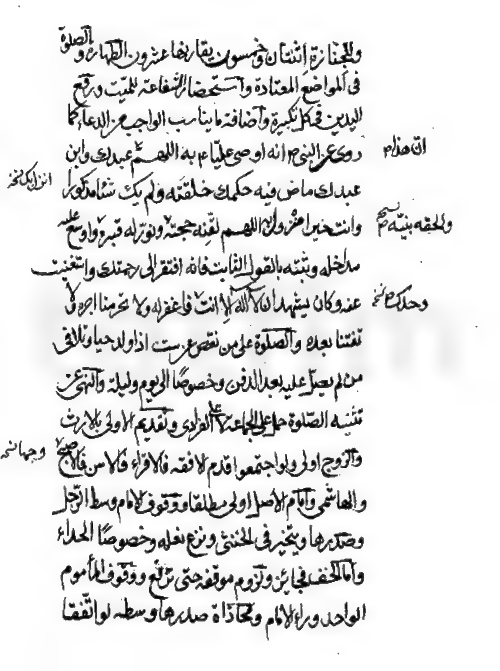 وللجنازة اثنتان وخمسون يقاربها عشرون الطهارة والصلوة
في المواضع المعتادة واستحضار الشفاعة للميت ورفع
اليدين في كل تكبيرة واضافة ما يناسب الواجب من الدعاء كما
روى عن النبي ص انه اوصى عليا ع به اللهم عبدك وابن
عبدك ماض فيه حكمك خلقته ولم يك شيئا مذكورا
وانت خير مزور اللهم لقنه حجته ونور له قبره واوسع عليه
مداخله وثبته بالقول الثابت فانه افتقر الى رحمتك واستغنيت
عنه وكان يشهد ان لا اله الا انت فاغفر له ولا تحرمنا اجره ولا
تفتنا بعده والصلوة على من نقص عن ست اذا ولد حيا وتلافي
من لم يصل عليه بعد الدفن وخصوصا الى يوم وليلة والنهي عن
تثنية الصلوة حمل على الجماعة لا على الفرادى وتقديم الاولى بالارث
والزوج اولى ولو اجتمعوا قدم الافقه فالاقراء فالاسن فالاصبح
والهاشمي وامام الاصل اولى مطلقا ووقوف الامام وسط الرجل
وصدرها ويتخير في الخنثى ونزع نعله وخصوصا الحذاء
واما الخف فجائز ولزوم موقفه حتى ترفع ووقوف المأموم
الواحد وراء الامام ومحاذاة صدرها وسطه لو اتفقا
ان هذا م
انزل بك نسخه
والحقه بنبيه ص
وحدك نسخه
وجها نسخه